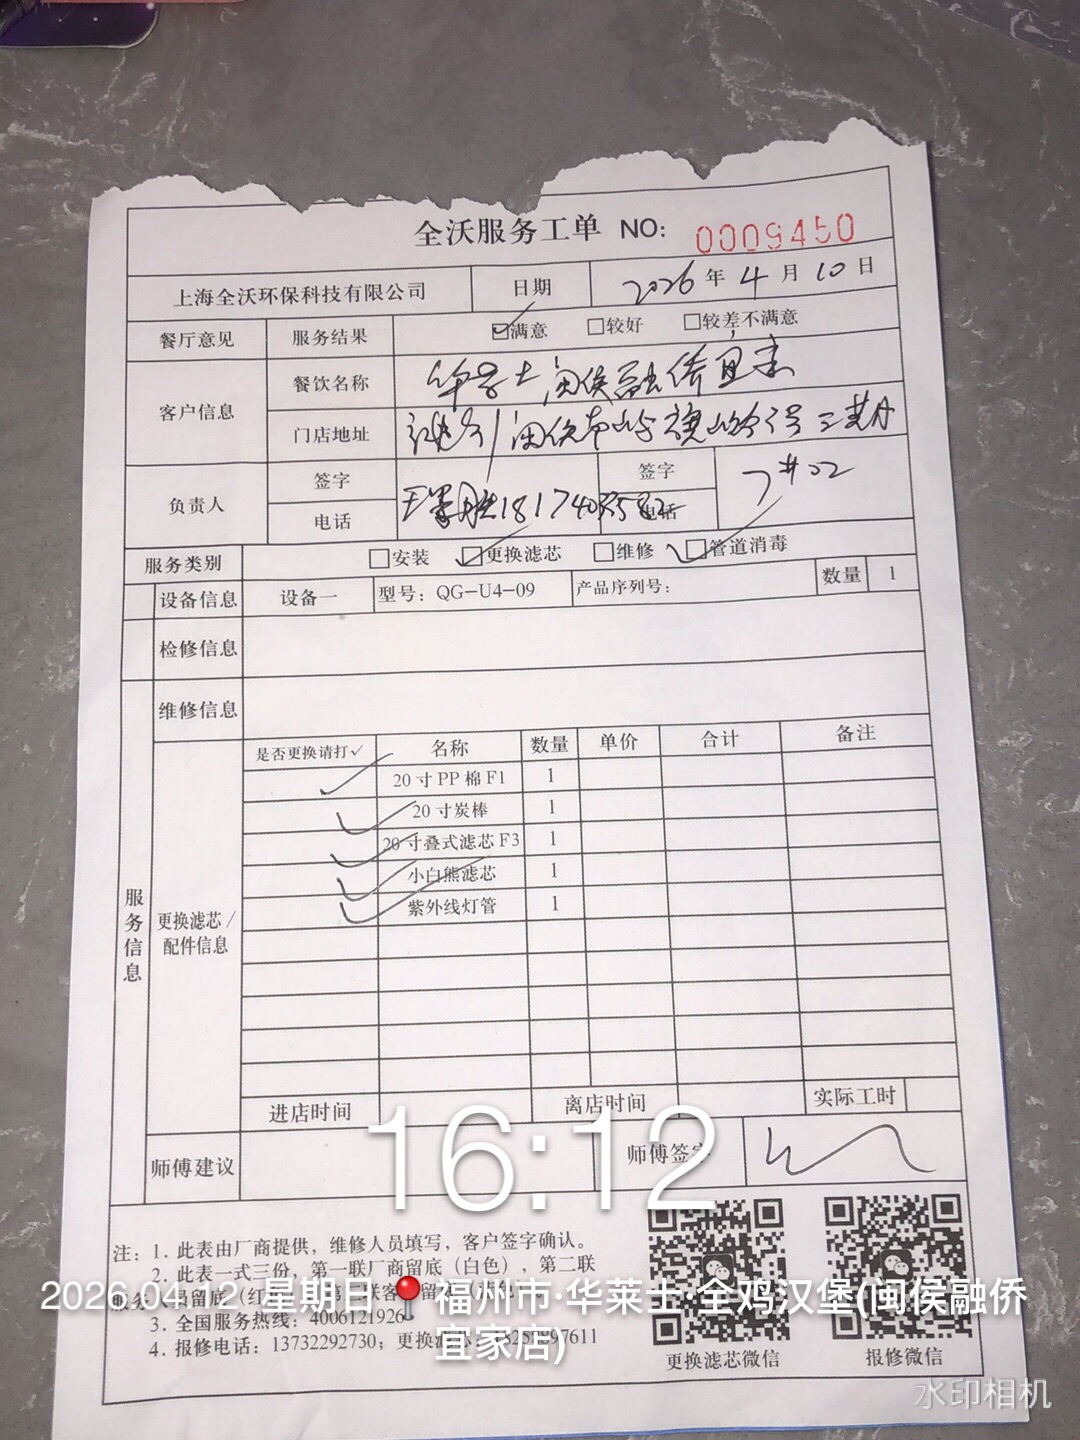 全沃服务工单 NO: 0009450
上海全沃环保科技有限公司 日期 2026年4月10日
餐厅意见 服务结果 ☑满意 □较好 □较差不满意
客户信息 餐饮名称 华莱士闽侯融侨宜家
门店地址 闽侯
负责人 签字 签字
电话 电话
服务类别 □安装 ☑更换滤芯 □维修 ☑管道消毒
设备信息 设备一 型号：QG-U4-09 产品序列号： 数量 1
检修信息
维修信息
是否更换请打✓ 名称 数量 单价 合计 备注
✓ 20寸PP棉F1 1
✓ 20寸炭棒 1
✓ 20寸叠式滤芯F3 1
✓ 小白熊滤芯 1
✓ 紫外线灯管 1
服务信息
更换滤芯/
配件信息
进店时间 离店时间 实际工时
16:12
师傅建议 师傅签字
注：1. 此表由厂商提供，维修人员填写，客户签字确认。
2. 此表一式三份，第一联厂商留底（白色），第二联
3. 全国服务热线：4006121926
4. 报修电话：13732292730；更换滤芯：
更换滤芯微信 报修微信
2026.04.12 星期日 福州市·华莱士·全鸡汉堡(闽侯融侨
宜家店)
水印相机